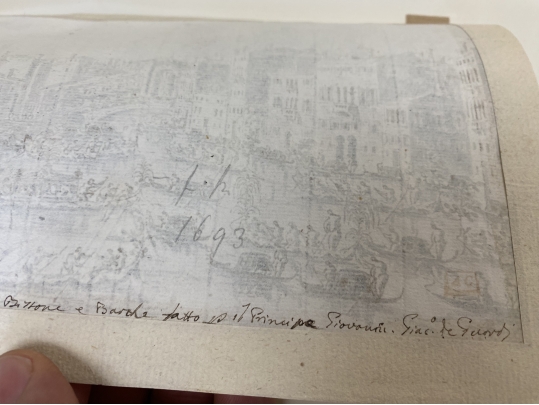 f. h
1693
Bissone e Barche fatto p il Principe Giovanni. Giac.o de Guardi